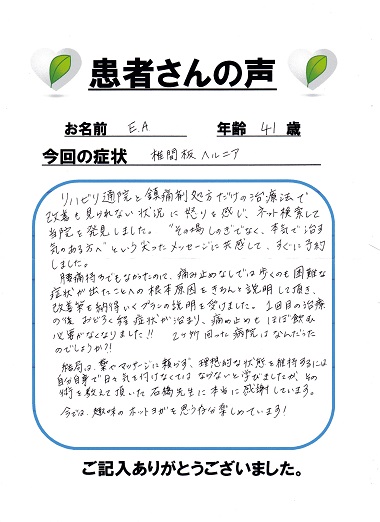 患者さんの声
お名前 E.A 年齢 41 歳
今回の症状 椎間板ヘルニア
リハビリ通院と鎮痛剤処方だけの治療法で
改善も見られない状況に怒りを感じ、ネット検索して
当院を発見しました。"その場しのぎでなく、本気で治す
気のある方へ"という尖ったメッセージに共感して、すぐに予約
しました。
腰痛持ちでもなかったので、痛み止めなしでは歩くのも困難な
症状が出たことへの根本原因をきちんと説明して頂き、
改善策を納得いくプランの説明を受けました。1回目の治療
の後、おどろく程症状が治まり、痛み止めもほぼ飲む
必要がなくなりました!! 2ヶ月間回った病院はなんだった
のでしょうか?!
結局は、薬やマッサージに頼らず、理想的な状態を維持するには
自分自身で日々気を付けなくてはならないと学びましたが、その
術を教えて頂いた石橋先生に本当に感謝しています。
今では、趣味のホットヨガを思う存分楽しめています!
ご記入ありがとうございました。